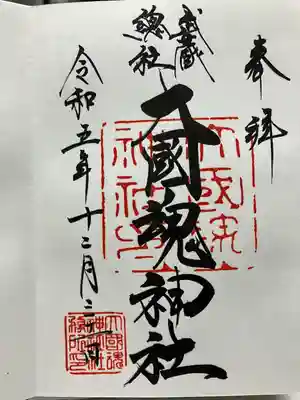 奉拝
武蔵
總社
大國魂神社
令和五年十二月三十一日